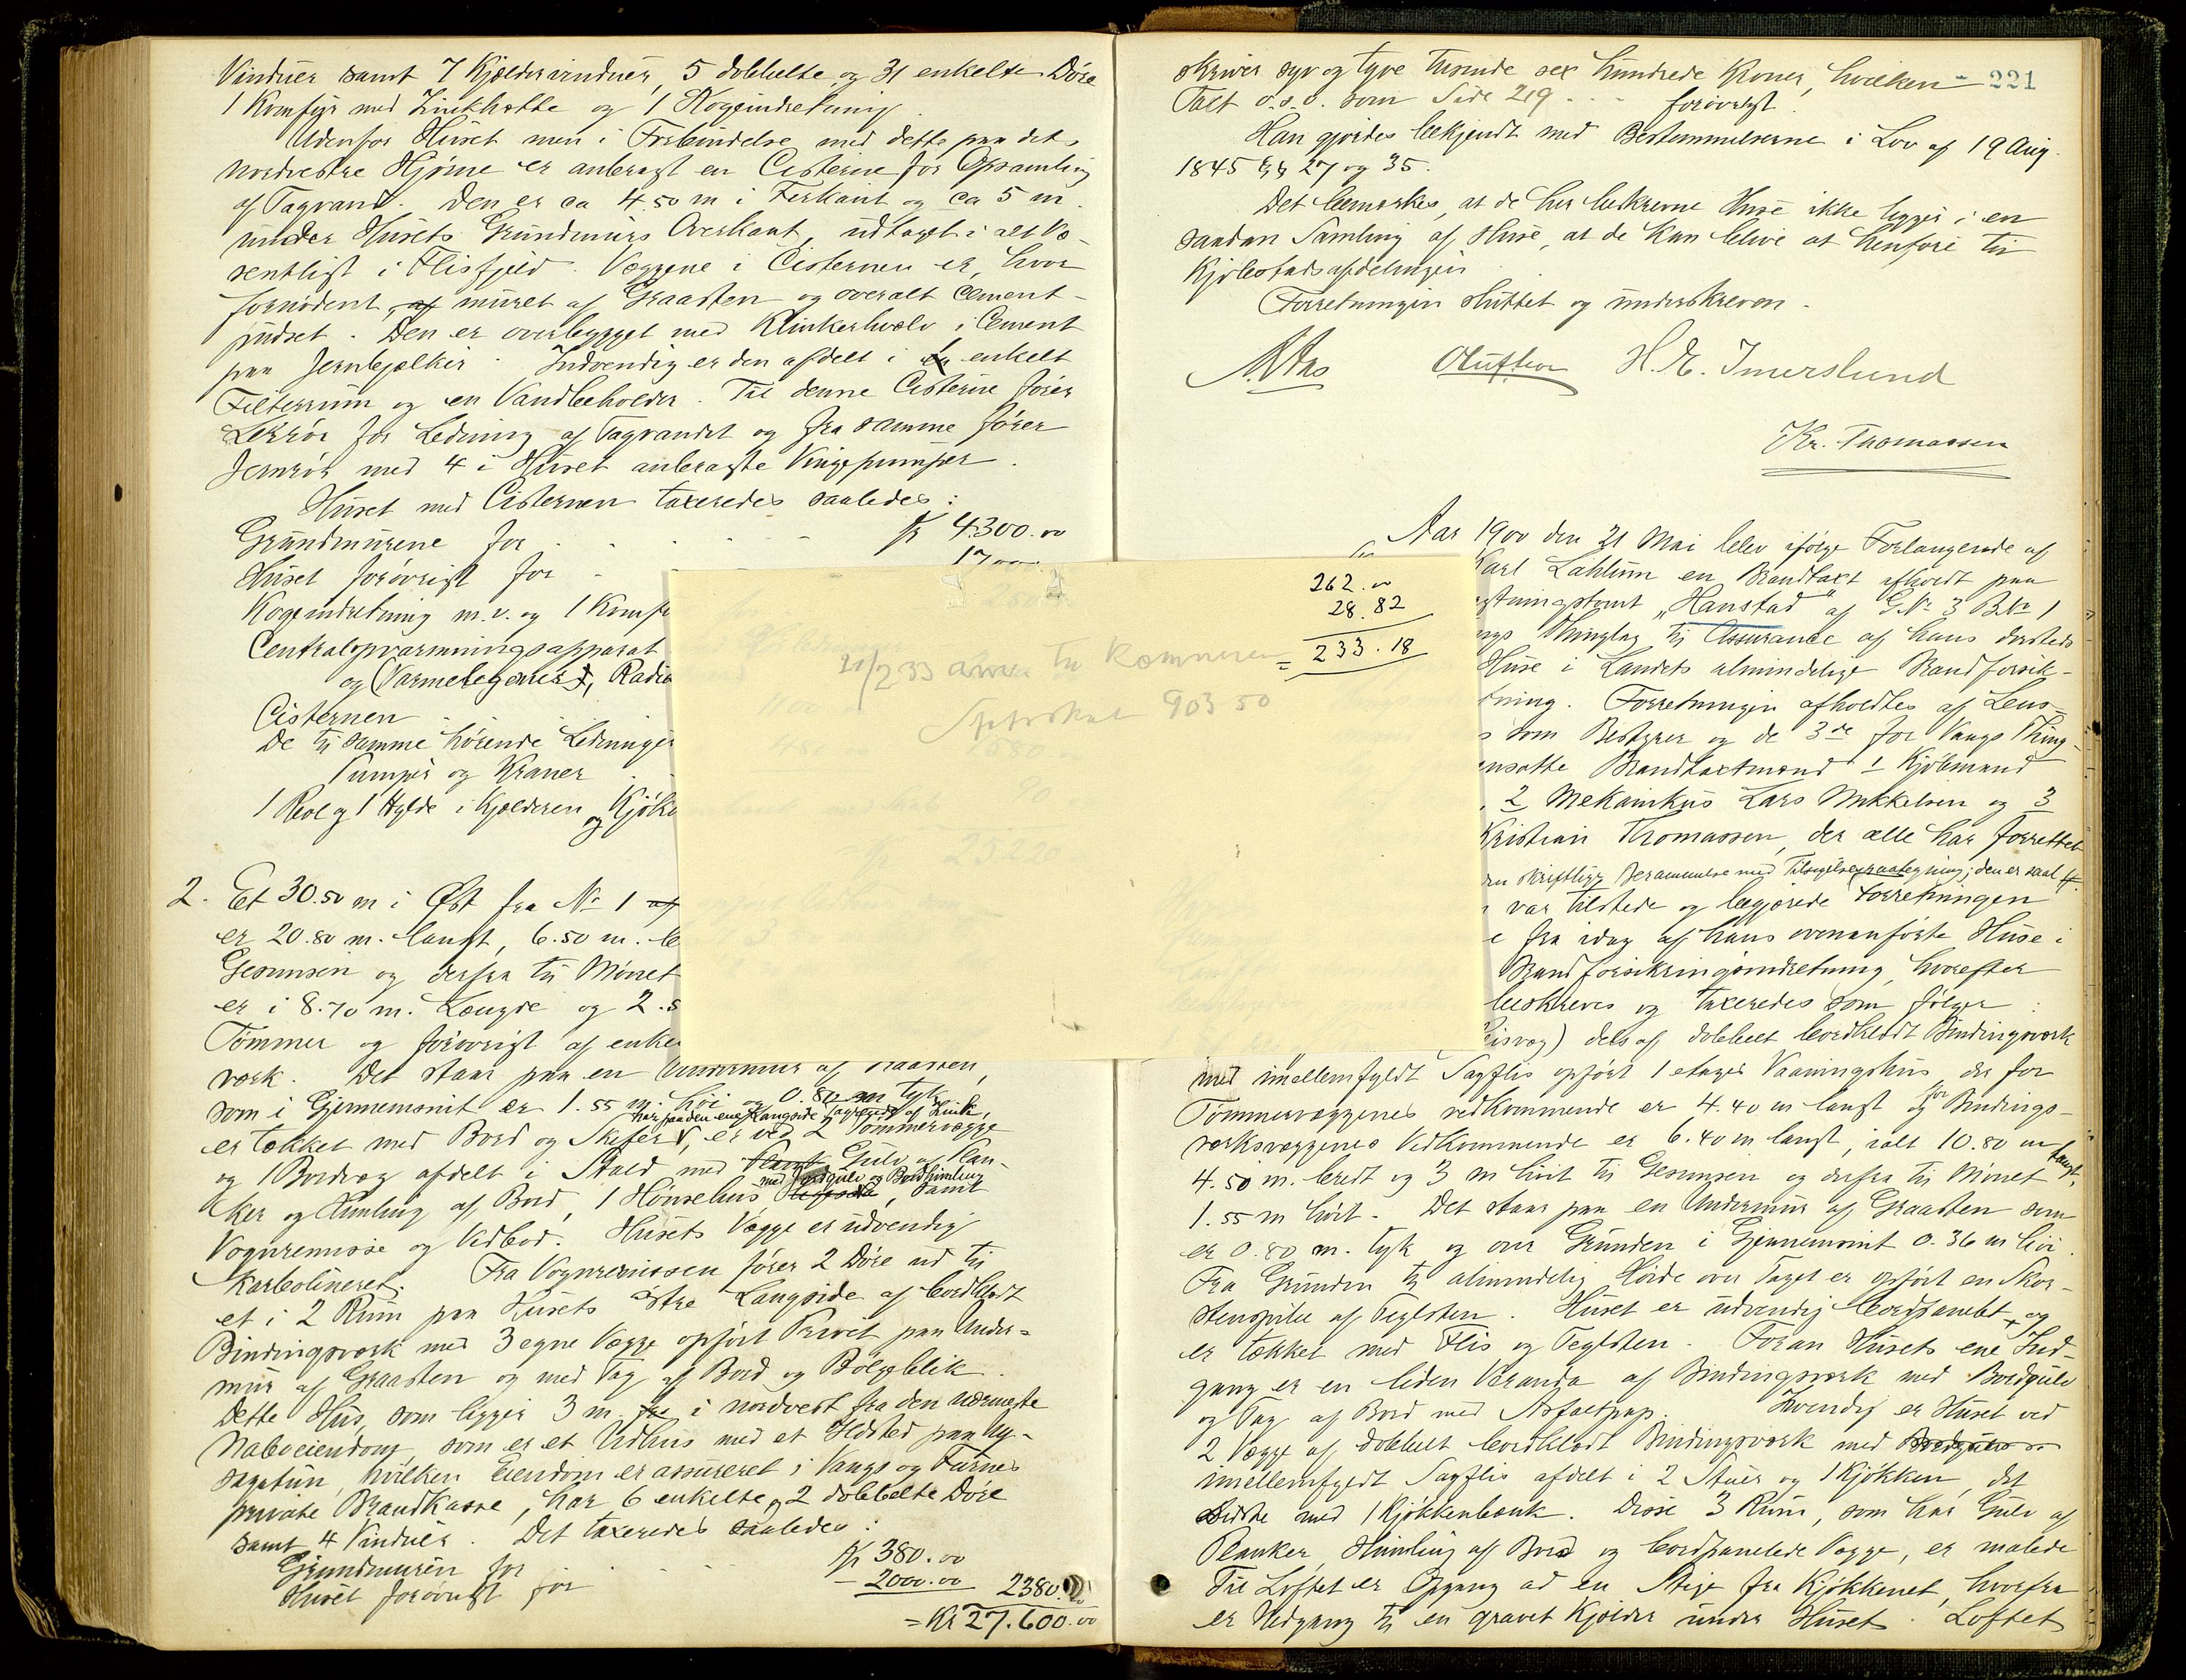 Vinduer samt 7 Kjældervinduer, 5 dobbelte og 31 enkelte Døre
1 Komfyr med Zinkhætte og 1 Kogeindretning
Udenfor Huset men i Forbindelse med dette paa det
nordvestre Hjørne er anbragt en Cisterne for Opsamling
af Tagvand. Den er ca 4.50 m i Firkant og ca 5 m
under Husets Grundmurs Overkant, udtaget i alt væ-
sentligt i Flisfjeld. Væggene i Cisternen er, hvor
fornødent, af muret af Graasten og overalt cement-
pudset. Den er overbygget med Klinkerhvælv i Cement
paa Jernbjælker. Indvendig er den afdelt i en enkelt
Filterrum og en Vandbeholder. Til denne Cisterne fører
Lerrør for Ledning af Tagvandet og fra samme fører
Jernrør med 4 i Huset anbragte Vingepumper.
Huset med Cisternen taxeredes saaledes:
Grundmurene for Kr 4300.00
Huset forøvrigt for 17000
Kogeindretning m.v. og 1 Komf
Centralopvarmningsapparat
og (Varmelegemer), Radia
Cisternen
De til samme hørende Ledninger
Pumper og Kraner
1 Reol og 1 Hylde i Kjælderen og Kjøk
2. Et 30.50 m i Øst fra No 1 af
er 20.80 m. langt, 6.50 m. b
Gesimsen og derfra til Mønet
er i 8.70 m. Længde og 2.
Tømmer og forøvrigt af enke
værk. Det staar paa en Undermur af Graasten,
som i Gjennemsnit er 1.55 m. høi og 0.80 m tyk,
har paa den ene Langside Tagrende af Zink,
er tækket med Bord og Skifer, er ved 2 Tømmervægge
og 1 Bordvæg afdelt i Stald med Gulv af Plan-
med Jordgulv og Bordhimling
ker og Himling af Bord, 1 Hønsehus, samt
Vognremisse og Vedbod. Husets Vægge er udvendig
karbolineret. Fra Vognremissen fører 2 Døre ud til
et i 2 Rum paa Husets østre Langside af bordklædt
Bindingsværk med 3 egne Vægge opført Privet paa Under-
mur af Graasten og med Tag af Bord og Bølgeblik.
Dette Hus, som ligger 3 m. fra i nordvest fra den nærmeste
Naboeiendom, som er et Udhus med et Ildsted paa Ny-
sagatun, hvilken Eiendom er assureret i Vangs og Furnes
private Brandkasse, har 6 enkelte og 2 dobbelte Døre
samt 4 Vinduer. Det taxeredes saaledes:
Grundmuren for Kr 380.00
Huset forøvrigt for - 2000.00 2380.00
= Kr 27.600.00
262.00
28.82
= 233.18
21/2 33 til Kæmneren
903 50
221
skriver syv og tyve tusinde sex hundrede Kroner, hvilken
Taxt o.s.v. som Side 219 - - - forøvrigt.
Han gjordes bekjendt med Bestemmelserne i Lov af 19 Aug.
1845 §§ 27 og 35.
Det bemærkes, at de her beskrevne Huse ikke ligger i en
saadan Samling af Huse, at de kan blive at henføre til
Kjøbstadsafdelingen
Forretningen sluttet og underskreven.
H. E. Imerslund
Kr. Thomassen
Aar 1900 den 21 Mai blev ifølge Forlangende af
Karl Lahlum en Brandtaxt afholdt paa
gstningstomt "Hanstad" af G.No 3 B.No 1
ngs Thinglag til Assurance af hans dersteds
Huse i Landets almindelige Brandforsik-
tning. Forretningen afholdtes af Lens-
s som Bestyrer og de 3de for Vangs Thing-
ansatte Brandtaxtmænd 1 Kjøbmand
, 2 Mekanikus Lars Mikkelsen og 3
Kristian Thomassen, der alle har forrettet
en skriftlig Berammelse med Tilsigelsespaategning; den er saal
var tilstede og begjærede Forretningen
e fra idag af hans ovenanførte Huse i
Brandforsikringsindretning, hvorefter
beskreves og taxeredes som følger:
eisvæg) dels af dobbelt bordklædt Bindingsværk
med imellemfyldt Sagflis opført 1 etages Vaaningshus, der for
Tømmervæggenes vedkommende er 4.40 m langt og for Bindings-
værksvæggenes Vedkommende er 6.40 m langt, ialt 10.80 m langt,
4.50 m. bredt og 3 m høit til Gesimsen og derfra til Mønet
1.55 m høit. Det staar paa en Undermur af Graasten som
er 0.80 m. tyk og over Grunden i Gjennemsnit 0.36 m høi.
Fra Grunden til almindelig Høide over Taget er opført en Skor-
stenspibe af Teglsten. Huset er udvendig bordpanelet, og
er tækket med Flis og Teglsten. Foran Husets ene Ind-
gang er en liden Veranda af Bindingsværk med Bordgulv
og Tag af Bord med Asfaltpap. Indvendig er Huset ved
2 Vægge af dobbelt bordklædt Bindingsværk med Bordgulv
imellemfyldt Sagflis afdelt i 2 Stuer og 1 Kjøkken, det
sidste med 1 Kjøkkenbænk. Disse 3 Rum, som har Gulv af
Planker, Himling af Bord og bordpanelede Vægge, er malede
Til Loftet er Opgang ad en Stige fra Kjøkkenet, hvorfra
er Nedgang til en gravet Kjælder under Huset. Loftet